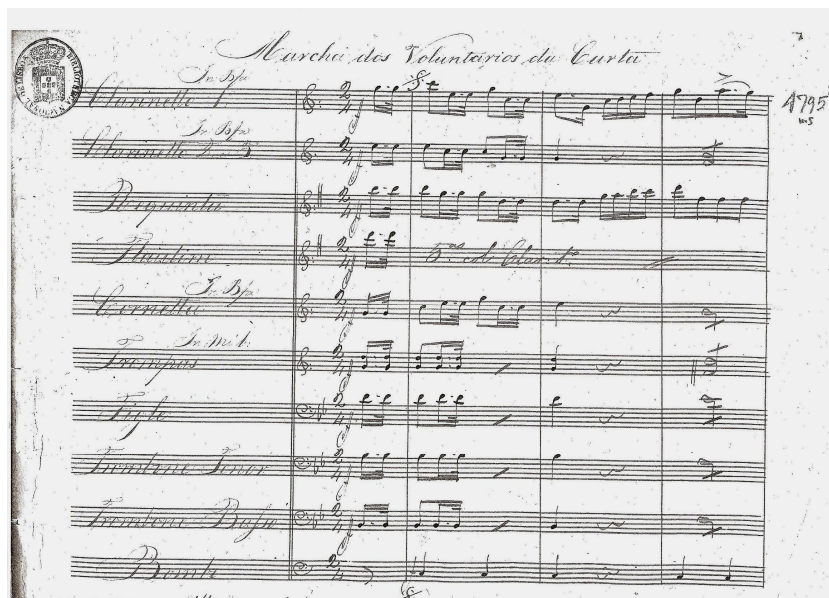 Marcha dos Voluntarios da Carta
7
4795
ms
In Bfa
Clarinette 1.
In Bfa
Clarinette 2. 3.
Requinta
Flautim
8.as al Clar. 1.o
In Bfa
Cornetta
In Mib
Trompas
Figle
Trombone Tenor
Trombone Basso
Bombo